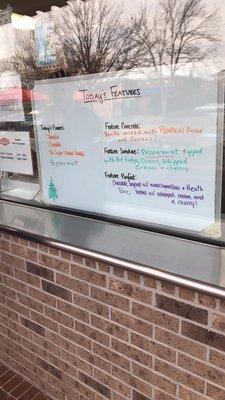 Today's Features
Today's Flavors:
- Vanilla
- Chocolate
- No Sugar Added Vanilla
- Peppermint
Feature Concrete:
Vanilla mixed with PUMPKIN PUREE
and Pecans!
Feature Sundae: Peppermint topped
with Hot Fudge, Oreos, Whipped
Cream + cherry
Feature Parfait:
Chocolate, layered w/ marshmallow + Heath
Bar, topped w/ whipped cream and
a cherry!